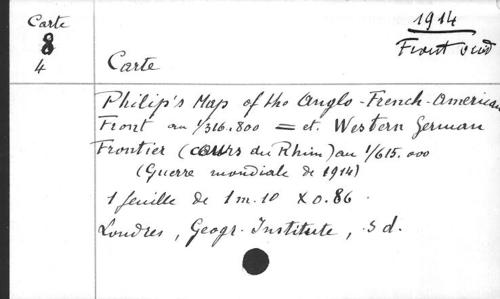 Carte
8
4
1914
Front sud
Carte
Philip's Map of the Anglo-French-American
Front au 1/316.800 = et. Western German
Frontier (cours du Rhin) au 1/615.000
(Guerre mondiale de 1914)
1 feuille de 1 m. 10 x 0.86.
Londres, Geogr. Institute, s d.